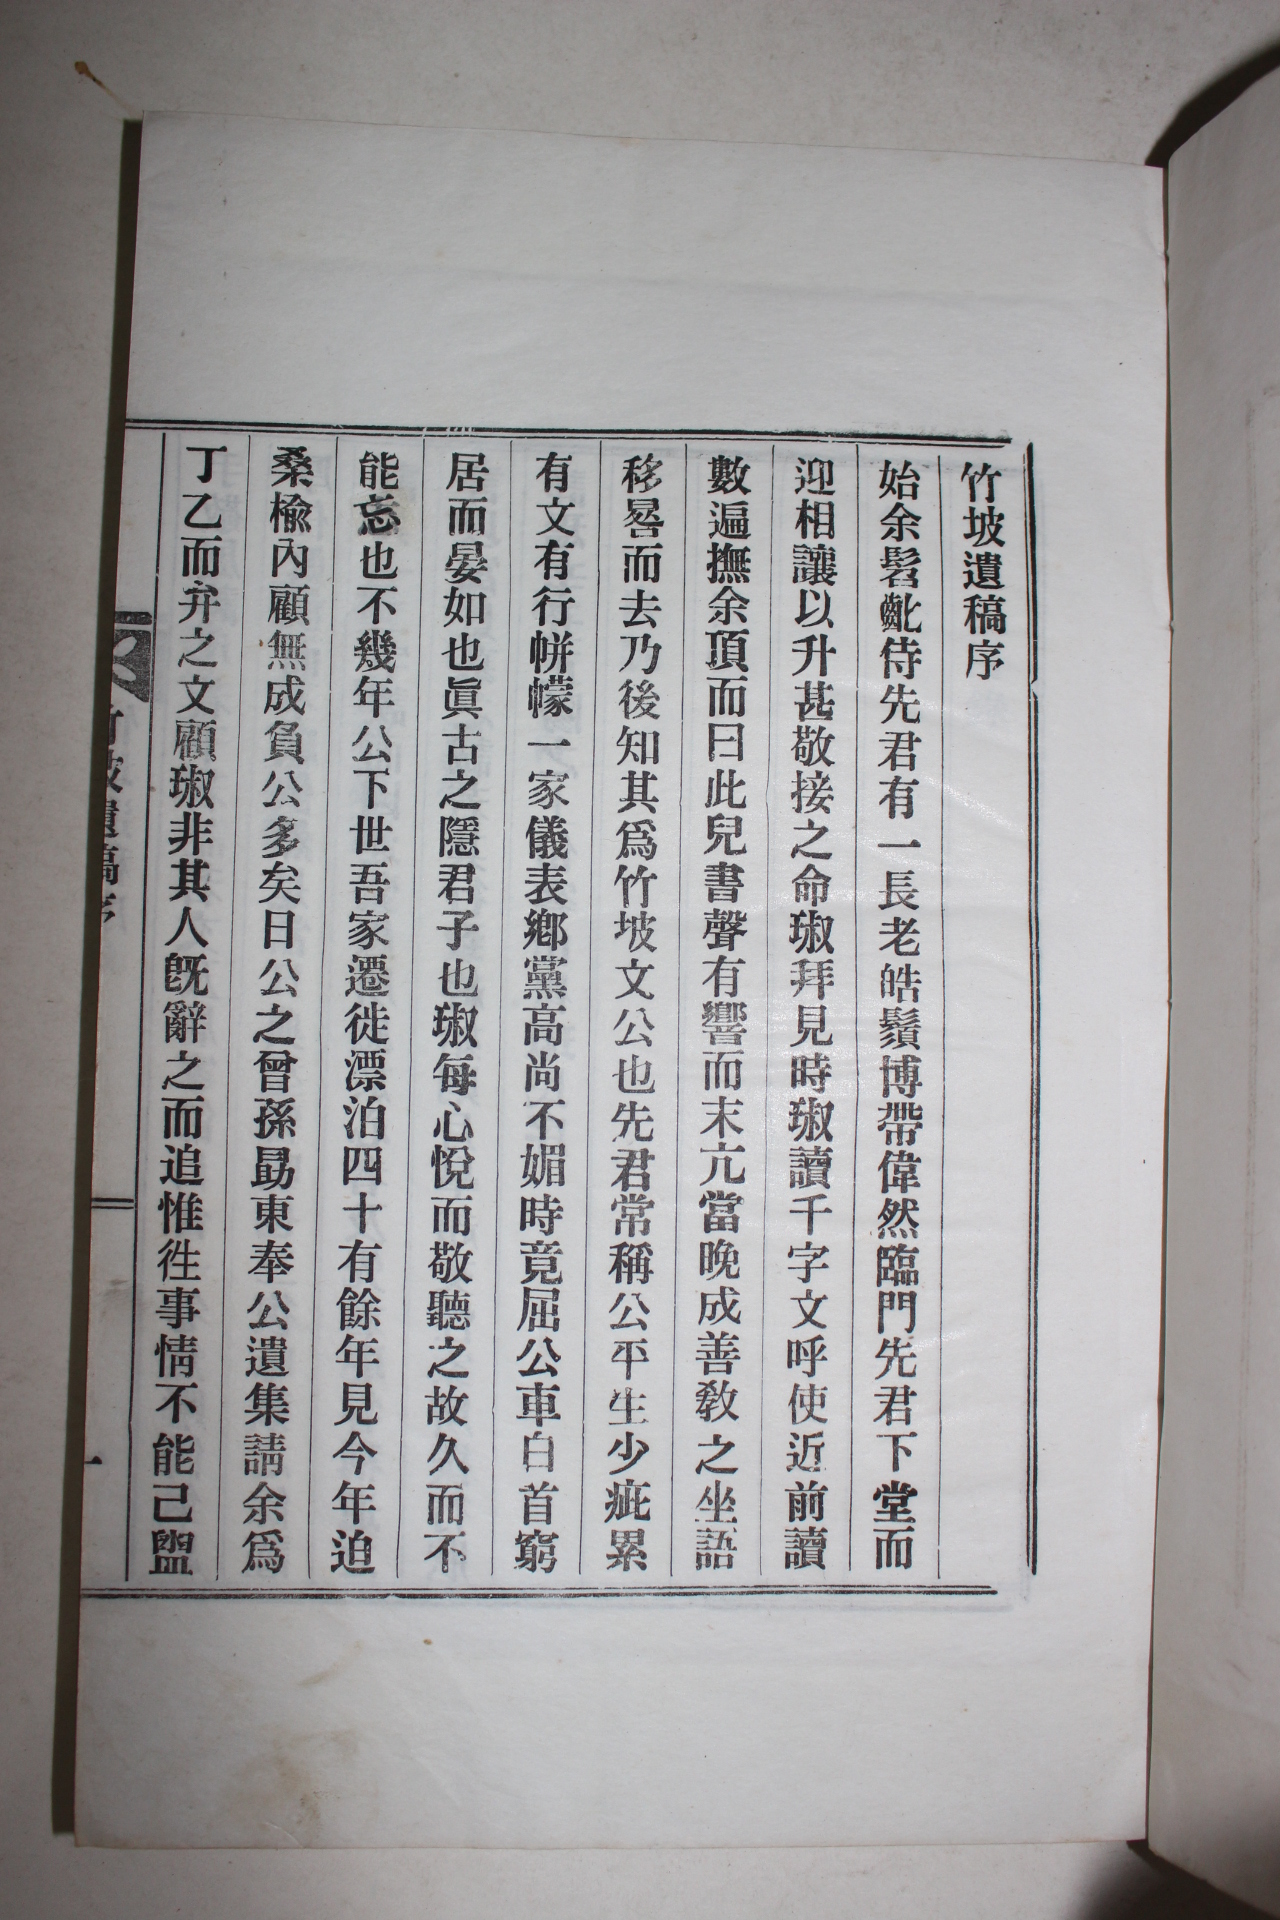 竹坡遺稿序
始余髫齔侍先君有一長老皓鬚博帶偉然臨門先君下堂而
迎相讓以升甚敬接之命琡拜見時琡讀千字文呼使近前讀
數遍撫余頂而曰此兒書聲有響而末亢當晚成善敎之坐語
移晷而去乃後知其爲竹坡文公也先君常稱公平生少疵累
有文有行帡幪一家儀表鄕黨高尚不媚時竟屈公車白首窮
居而晏如也眞古之隱君子也琡每心悅而敬聽之故久而不
能忘也不幾年公下世吾家遷徙漂泊四十有餘年見今年迫
桑楡內顧無成負公多矣日公之曾孫勗東奉公遺集請余爲
丁乙而弁之文顧琡非其人旣辭之而追惟徃事情不能己盥
竹坡遺稿序
一